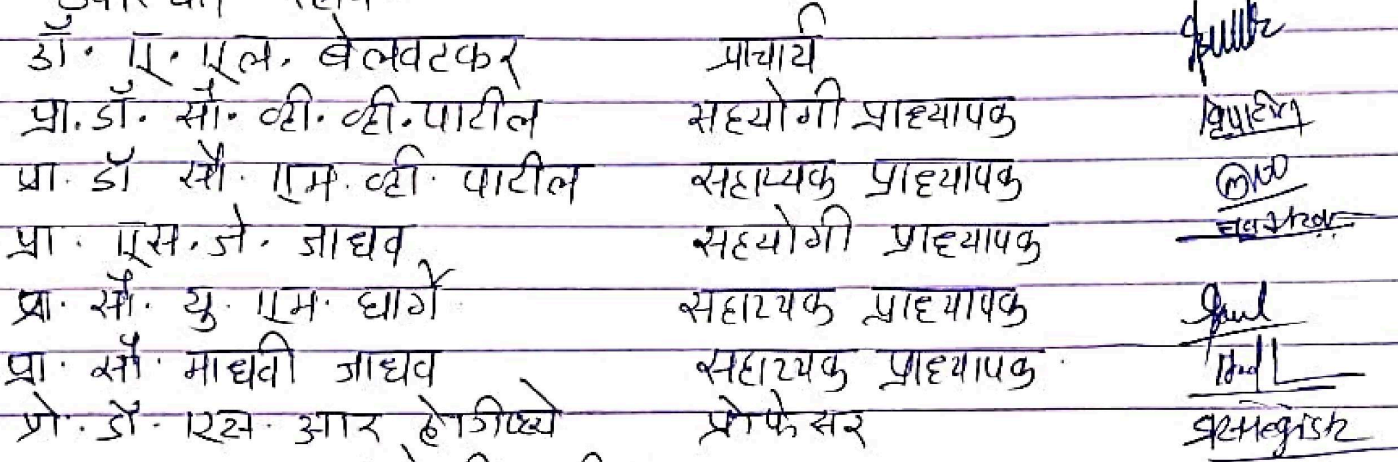 डॉ. ए. एल. बेलवटकर प्राचार्य
प्रा. डॉ. सौ. व्ही. व्ही. पाटील सहयोगी प्राध्यापक
प्रा. डॉ सौ. एम. व्ही. पाटील सहाय्यक प्राध्यापक
प्रा. एस. जे. जाधव सहयोगी प्राध्यापक
प्रा. सौ. यु. एम. घार्गे सहाय्यक प्राध्यापक
प्रा. सौ. माधवी जाधव सहाय्यक प्राध्यापक
प्रो. डॉ. एस. आर प्रोफेसर